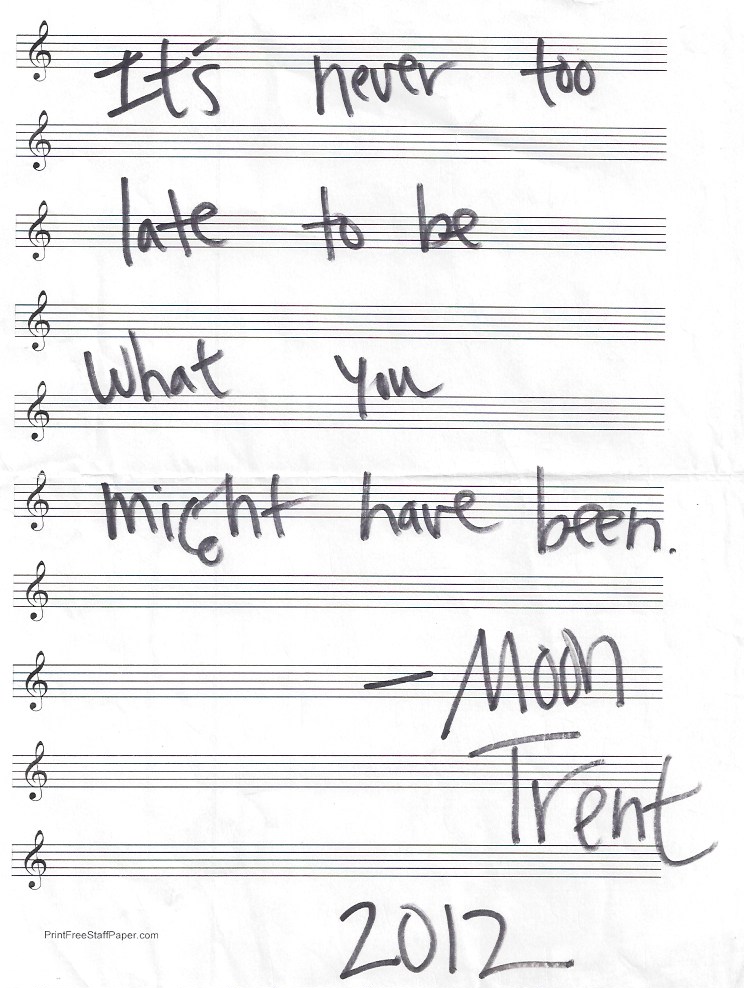 It's never too
late to be
what you
might have been.
— Moon
Trent
2012
PrintFreeStaffPaper.com